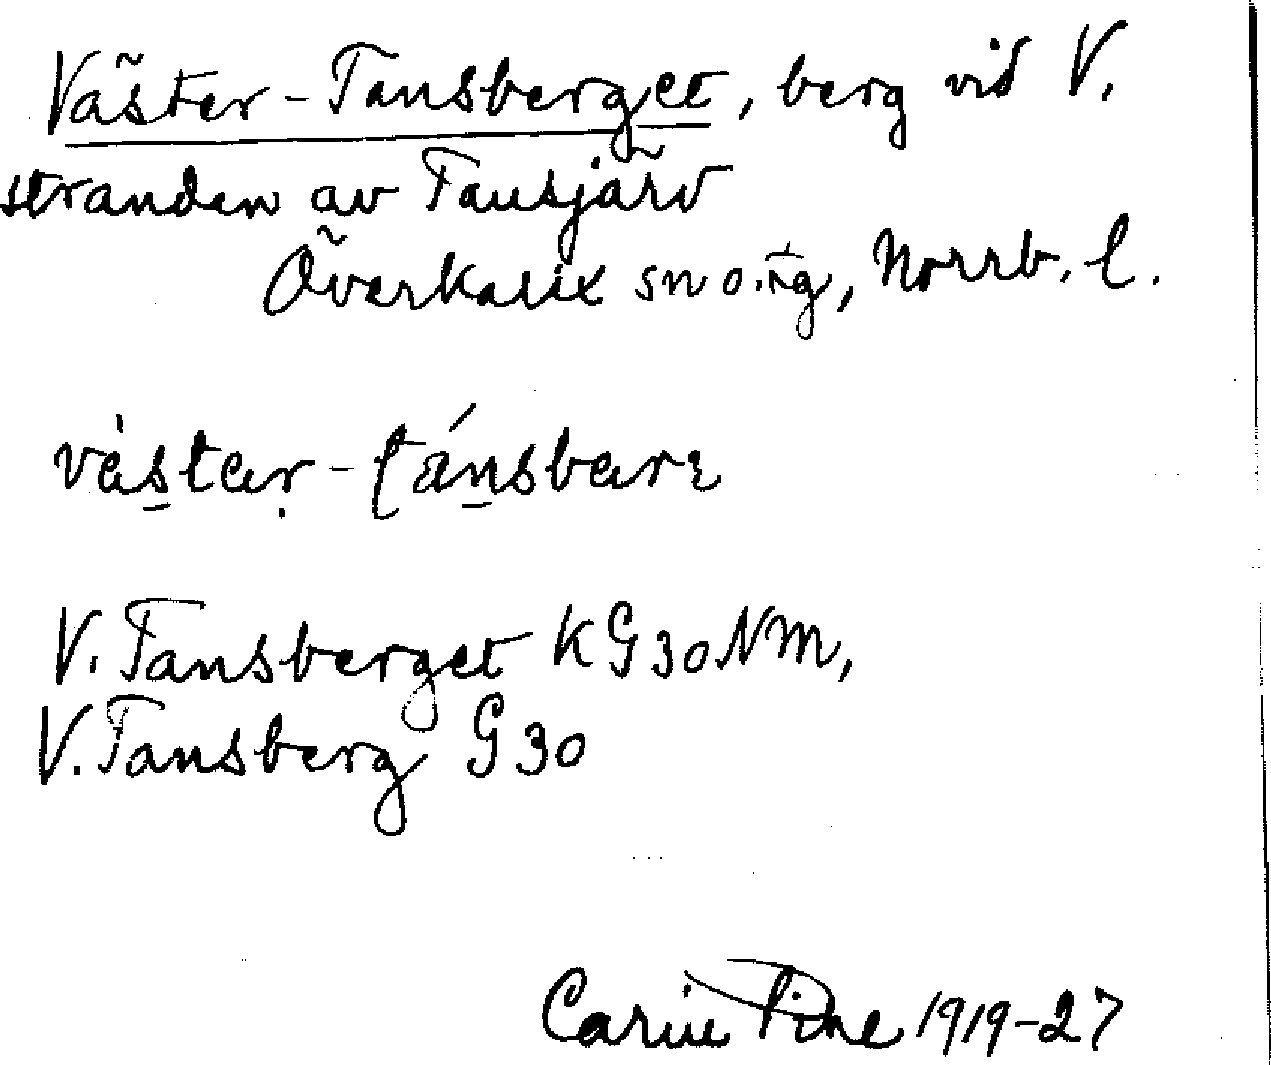 Väster-Tansberget, berg vid V.
stranden av Tansjärv
Överkalix sn o. tg, Norrb. l.
väster-tánsbærɛ
V. Tansberget KG30NM,
V. Tansberg G30
Carin Pihl 1919-27